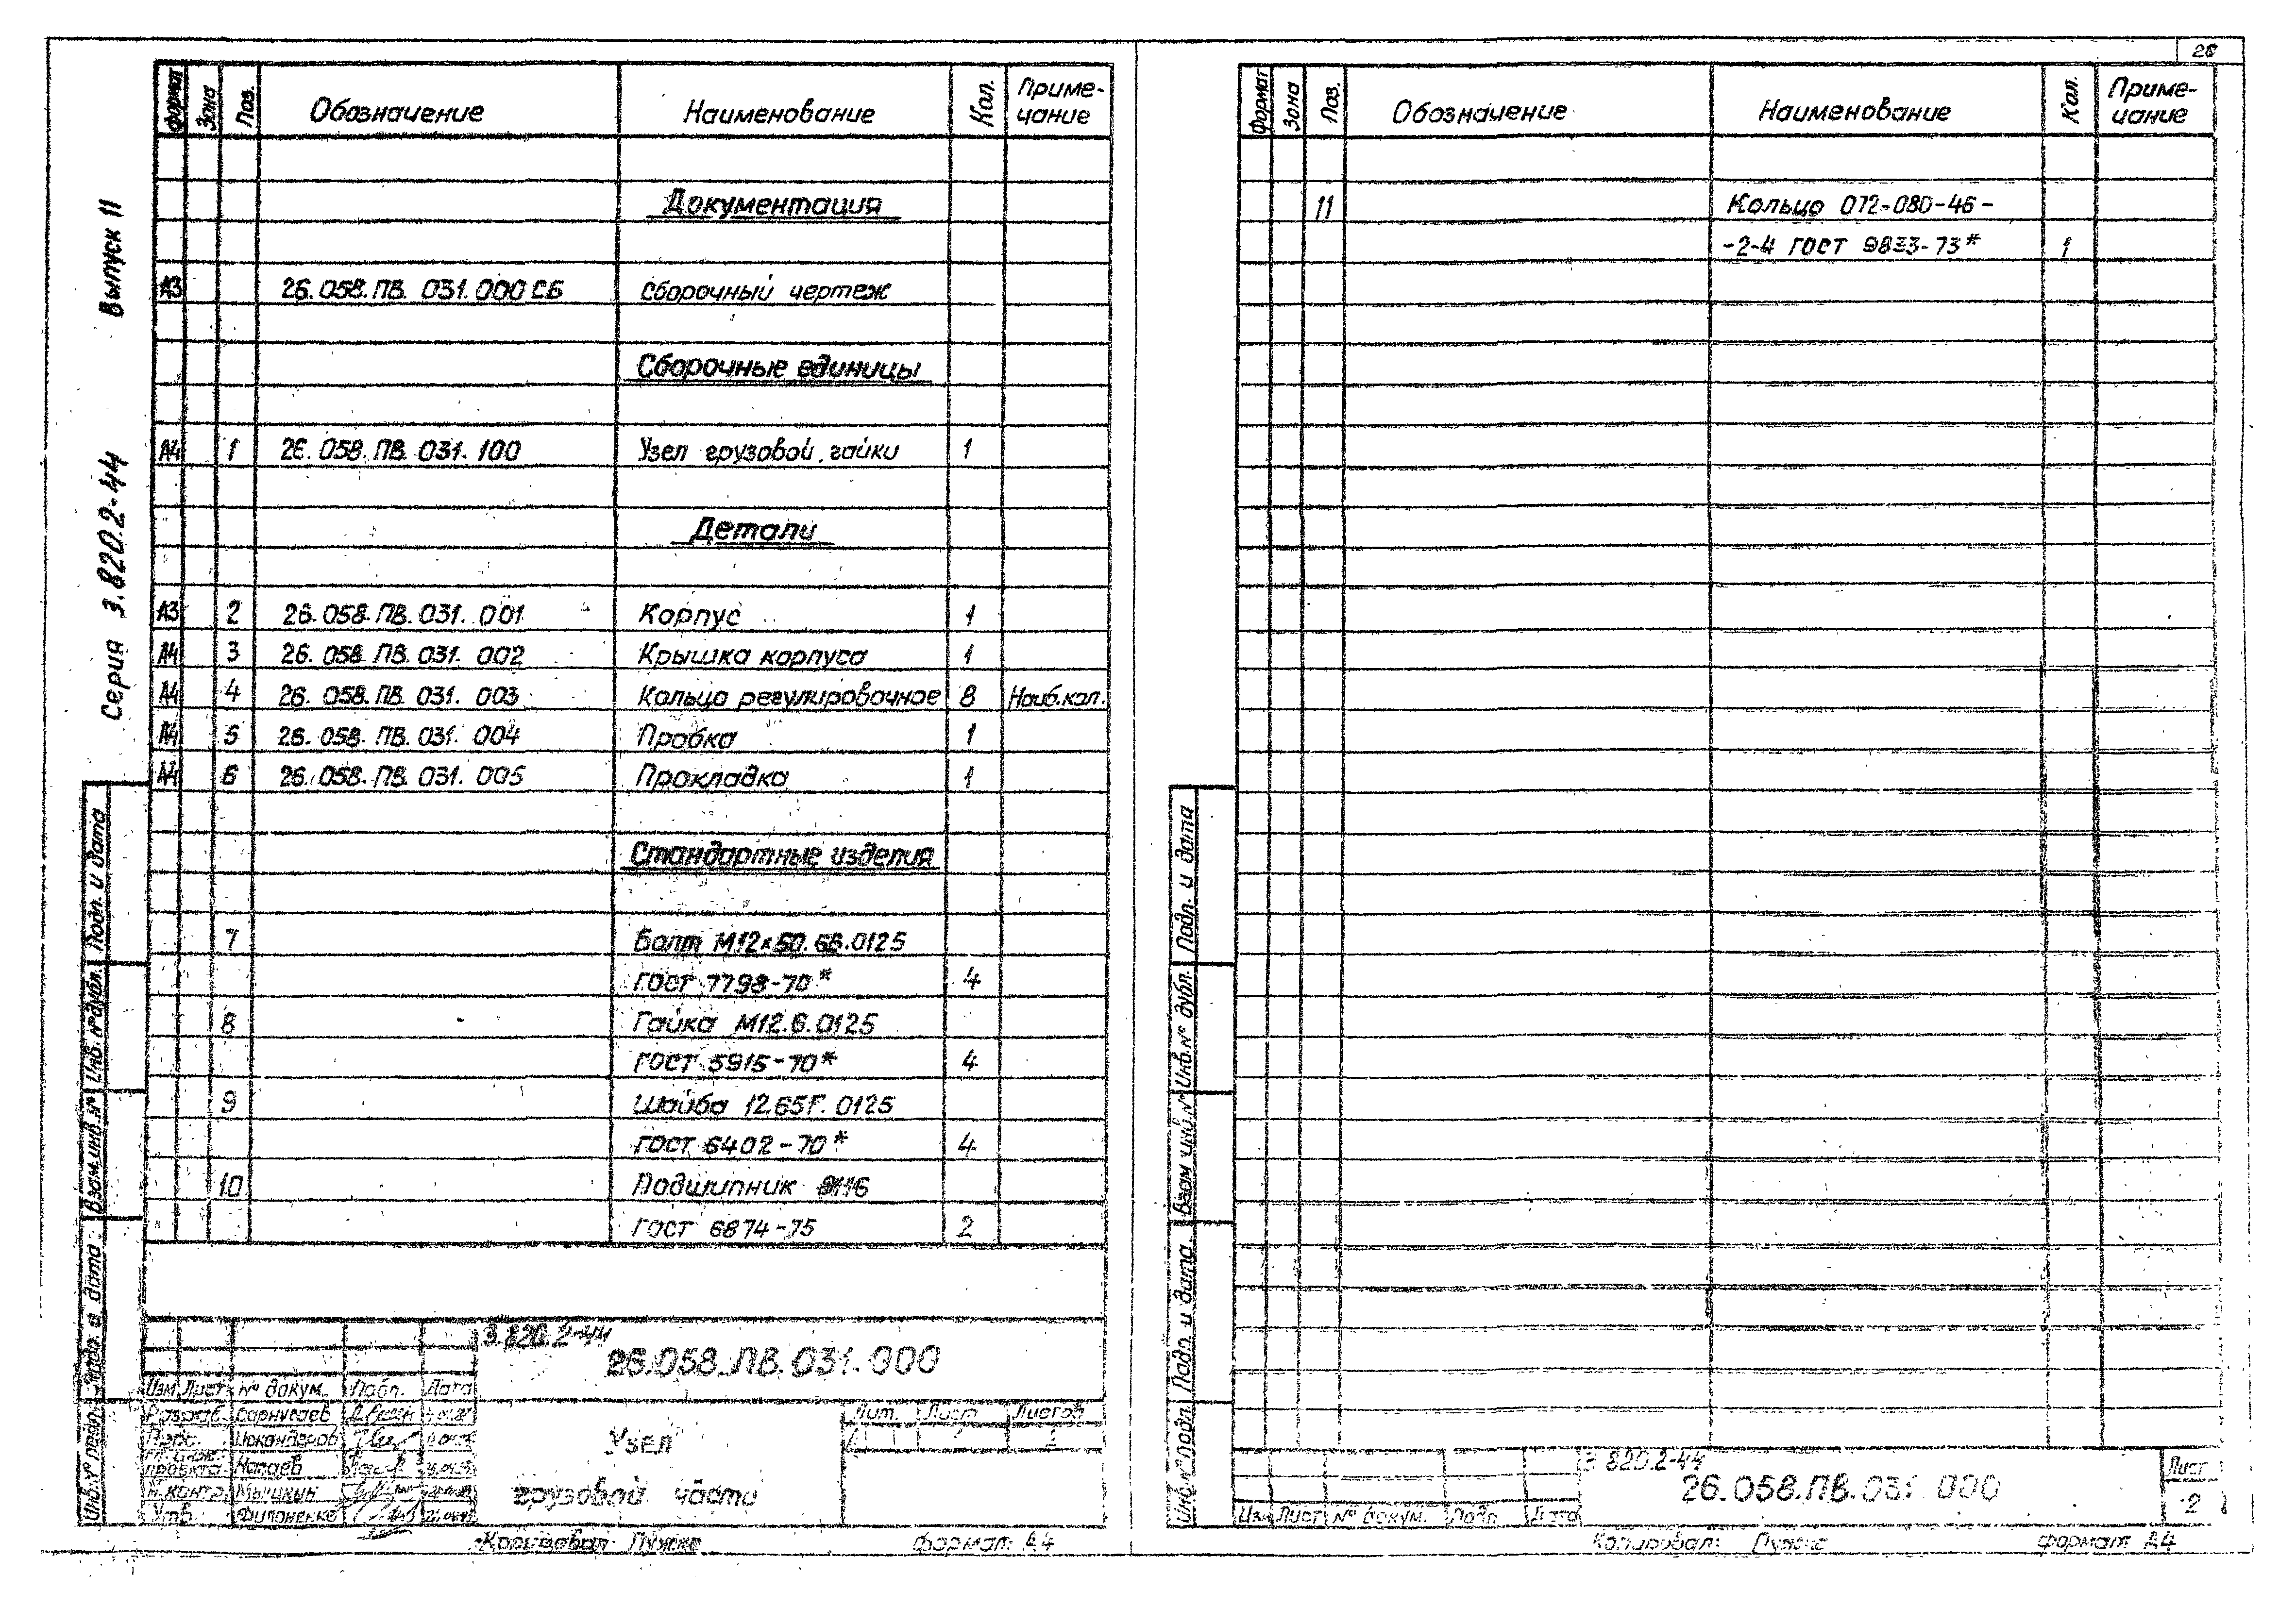 26
Серия 3.820.2-44 Выпуск 11
Формат Зона Поз. Обозначение Наименование Кол. Приме-
чание
Документация
А3 26.058.ПВ.031.000СБ Сборочный чертеж
Сборочные единицы
А4 1 26.058.ПВ.031.100 Узел грузовой гайки 1
Детали
А3 2 26.058.ПВ.031.001 Корпус 1
А4 3 26.058.ПВ.031.002 Крышка корпуса 1
А4 4 26.058.ПВ.031.003 Кольцо регулировочное 8 Наиб.кол.
А4 5 26.058.ПВ.031.004 Пробка 1
А4 6 26.058.ПВ.031.005 Прокладка 1
Стандартные изделия
7 Болт М12×50.66.0125
ГОСТ 7798-70* 4
8 Гайка М12.6.0125
ГОСТ 5915-70* 4
9 Шайба 12.65Г.0125
ГОСТ 6402-70* 4
10 Подшипник 8116
ГОСТ 6874-75 2
Подп. и дата
Инв. № дубл.
Взам. инв. №
Подп. и дата
Инв. № подл.
3.820.2-44
26.058.ПВ.031.000
Изм Лист № докум. Подп. Дата
Разраб.
Пров. Искандеров
проекта
Н. контр. Мычкин
Утв. Филоненко
Узел
грузовой части
Лит. Лист Листов
Копировал Пужке формат А4
Формат Зона Поз. Обозначение Наименование Кол. Приме-
чание
11 Кольцо 072-080-46-
-2-4 ГОСТ 9833-73* 1
Подп. и дата
Инв. № дубл.
Взам инв. №
Подп. и дата
Инв. № подл.
3.820.2-44
26.058.ПВ.031.000
Лист
2
Изм Лист № докум. Подп. Дата
Копировал: Пужке формат А4